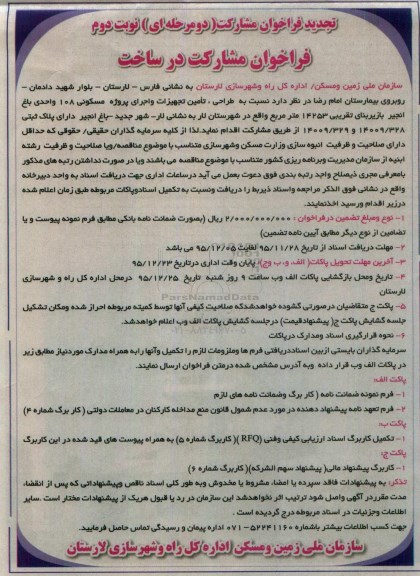 تجدید فراخوان مشارکت( دومرحله ای ) نوبت دوم
فراخوان مشارکت در ساخت
سازمان ملی زمین ومسکن/ اداره کل راه وشهرسازی لارستان به نشانی فارس – لارستان – بلوار شهید دادمان –
روبروی بیمارستان امام رضا در نظر دارد نسبت به طراحی ، تأمین تجهیزات واجرای پروژه مسکونی ۱۰۸ واحدی باغ
انجیر بازیربنای تقریبی ۱۴۲۵۳ متر مربع واقع در شهرستان لار به نشانی لار- شهر جدید –باغ انجیر دارای پلاک ثبتی
۱۴۰۰۹/۳۲۸ و ۱۴۰۰۹/۳۲۹ از طریق مشارکت اقدام نماید.لذا از کلیه سرمایه گذاران حقیقی/ حقوقی که حداقل
دارای صلاحیت و ظرفیت انبوه سازی وزارت مسکن وشهرسازی متناسب با موضوع مناقصه/ویا صلاحیت و ظرفیت رشته
ابنیه از سازمان مدیریت وبرنامه ریزی کشور متناسب با موضوع مناقصه می باشند ویا در صورت نداشتن رتبه های مذکور
بامعرفی مجری ذیصلاح واجد رتبه بندی فوق دعوت بعمل می آید درساعات اداری جهت دریافت اسناد به واحد دبیرخانه
واقع در نشانی فوق الذکر مراجعه واسناد ذیربط را دریافت ونسبت به تکمیل اسنادوپاکات مربوطه طبق زمان اعلام شده
درزیر اقدام ورسید اخذنمایند.
۱- نوع ومبلغ تضمین درفراخوان : ۲/۰۰۰/۰۰۰/۰۰۰ ریال (بصورت ضمانت نامه بانکی مطابق فرم نمونه پیوست و یا
تضامین از نوع دیگر مطابق آیین نامه تضمین)
۲- مهلت دریافت اسناد از تاریخ ۹۵/۱۱/۲۸ لغایت ۹۵/۱۲/۰۵ می باشد
۳- آخرین مهلت تحویل پاکات( الف، و، ب وج) پایان وقت اداری درتاریخ ۹۵/۱۲/۲۳
۴- تاریخ ومحل بازگشایی پاکات الف وب ساعت ۹ روز شنبه تاریخ ۹۵/۱۲/۲۵ درمحل اداره کل راه و شهرسازی
لارستان
۵- پاکت ج متقاضیان درصورتی گشوده خواهدشدکه صلاحیت کیفی آنها توسط کمیته مربوطه احراز شده ومکان تشکیل
جلسه گشایش پاکت ج( پیشنهادقیمت) درجلسه گشایش پاکات الف وب اعلام خواهدشد.
۶- نحوه قرارگیری اسناد ومدارک درپاکات
سرمایه گذاران بایستی ازبین اسناددریافتی فرم ها وملزومات لازم را تکمیل وآنها رابه همراه مدارک موردنیاز مطابق زیر
در پاکات الف وب قرار داده وبه آدرس مشخص شده درمتن فراخوان ارسال نمایند.
پاکت الف:
۱- فرم نمونه ضمانت نامه ( کار برگ وضمانت نامه های لازم
۲- فرم تعهد نامه پیشنهاد دهنده در مورد عدم شمول قانون منع مداخله کارکنان در معاملات دولتی ( کار برگ شماره ۴)
پاکت ب:
۱- تکمیل کاربرگ اسناد ارزیابی کیفی وفنی (RFQ )( کاربرگ شماره ۵) به همراه پیوست های قید شده در این کاربرگ
پاکت ج:
۱- کاربرگ پیشنهاد مالی( پیشنهاد سهم الشرکه)( کاربرگ شماره ۶)
تذکر: به پیشنهادات فاقد سپرده یا امضاء مشروط یا مخدوش وبه طور کلی اسناد ناقص وپیشنهاداتی که پس از انقضاء
مدت مقرردر آگهی واصل شود ترتیب اثر نخواهدشد این سازمان در رد یا قبول هریک از پیشنهادات مختار است .سایر
اطلاعات وجزئیات در اسناد مربوطه درج گردیده است .
جهت کسب اطلاعات بیشتر باشماره ۵۲۲۴۱۱۶۰ -۰۷۱ اداره پیمان و رسیدگی تماس حاصل فرمایید.
سازمان ملی زمین ومسکن اداره کل راه وشهرسازی لارستان
ParsNamadData